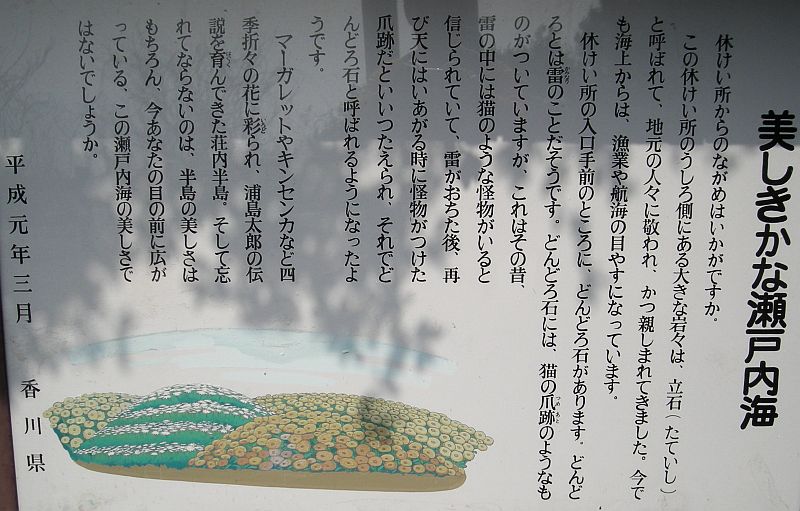 美しきかな瀬戸内海
休けい所からのながめはいかがですか。
この休けい所のうしろ側にある大きな岩々は、立石(たていし)
と呼ばれて、地元の人々に敬われ、かつ親しまれてきました。今で
も海上からは、漁業や航海の目やすになっています。
休けい所の入口手前のところに、どんどろ石があります。どんど
ろとは雷のことだそうです。どんどろ石には、猫の爪跡のようなも
のがついていますが、これはその昔、
雷の中には猫のような怪物がいると
信じられていて、雷がおちた後、再
び天にはいあがる時に怪物がつけた
爪跡だといいつたえられ、それでど
んどろ石と呼ばれるようになったよ
うです。
マーガレットやキンセンカなど四
季折々の花に彩られ、浦島太郎の伝
説を育んできた荘内半島。そして忘
れてならないのは、半島の美しさは
もちろん、今あなたの目の前に広が
っている、この瀬戸内海の美しさで
はないでしょうか。
平成元年三月
香川県